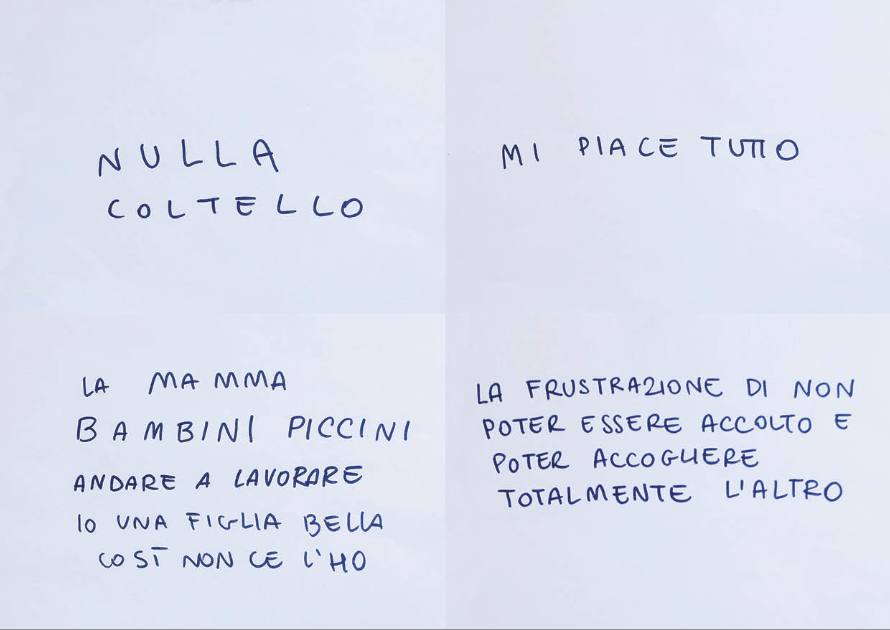 NULLA
COLTELLO
MI PIACE TUTTO
LA MAMMA
BAMBINI PICCINI
ANDARE A LAVORARE
IO UNA FIGLIA BELLA
COSÌ NON CE L'HO
LA FRUSTRAZIONE DI NON
POTER ESSERE ACCOLTO E
POTER ACCOGLIERE
TOTALMENTE L'ALTRO